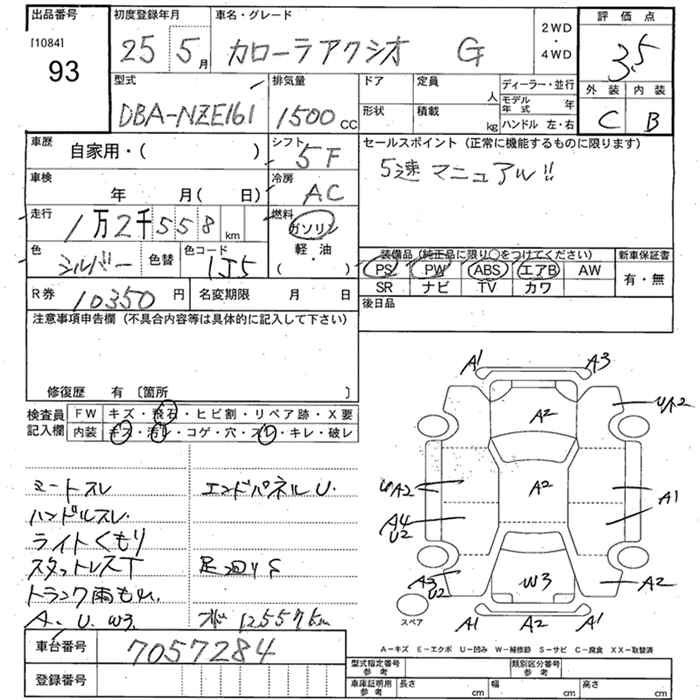 出品番号 初度登録年月 車名・グレード 2WD・4WD 評価点
[1084] 93 25 5月 カローラアクシオ G 3.5
型式 排気量 ドア 定員 人 ディーラー・並行 外装 内装
DBA-NZE161 1500cc 形状 積載 kg モデル年式 年 C B
ハンドル 左・右
車歴 自家用・( ) シフト 5F セールスポイント(正常に機能するものに限ります)
車検 年 月( 日) 冷房 AC 5速 マニュアル!!
走行 1万2千558km 燃料 ガソリン 軽・油 ( )
色 シルバー 色替 色コード 1J5 装備品(純正品に限り○をつけてください) 新車保証書
PS PW ABS エアB AW 有・無
SR ナビ TV カワ
R券 10350円 名変期限 月 日 後日品
注意事項申告欄(不具合内容等は具体的に記入して下さい)
修復歴 有〔箇所 〕
検査員記入欄 FW キズ・飛石・ヒビ割・リペア跡・X要
内装 キズ・汚レ・コゲ・穴・スレ・キレ・破レ
シートスレ エンドパネルU.
ハンドルスレ
ライトくもり
スタットレスT 足回りS
トランク雨もれ
A. U. W3 12557km
A1 A3
A2 UA2
UA2 A2 A1
A4 U2
A3 U2 W3 A2
A1 A2 A1
スペア
A-キズ E-エクボ U-凹み W-補修跡 S-サビ C-腐食 XX-取替済
車台番号 7057284
登録番号
型式指定番号 参考 類別区分番号 参考
車庫証明用 参考 長さ cm 幅 cm 高さ cm